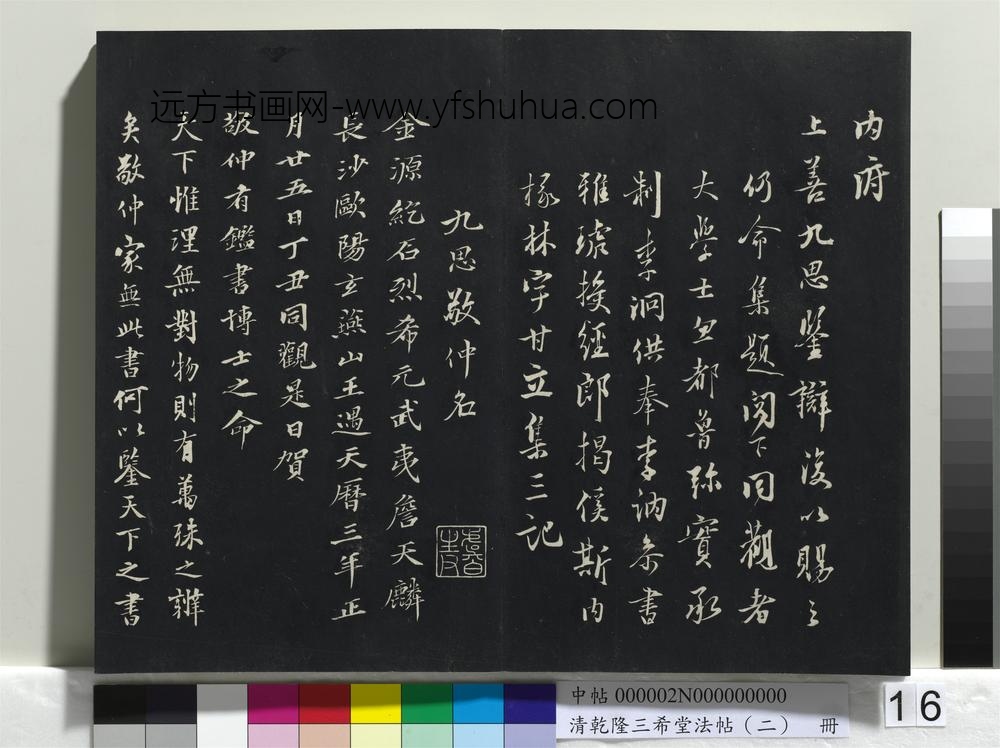 内府
上善九思鑒辯復以賜之
仍命集題閱下同觀者
大學士忽都魯弥實承
制李泂供奉李訥参書
雅琥授經郎揭傒斯内
掾林宇甘立集三記
九思敬仲名
金源紇石烈希元武夷詹天麟
長沙歐陽玄燕山王遇天曆三年正
月廿五日丁丑同觀是日賀
敬仲有鑑書博士之命
天下惟理無對物則有萬殊之辨
矣敬仲家無此書何以鑒天下之書
远方书画网-www.yfshuhua.com
中帖 000002N000000000
清乾隆三希堂法帖(二) 冊
16